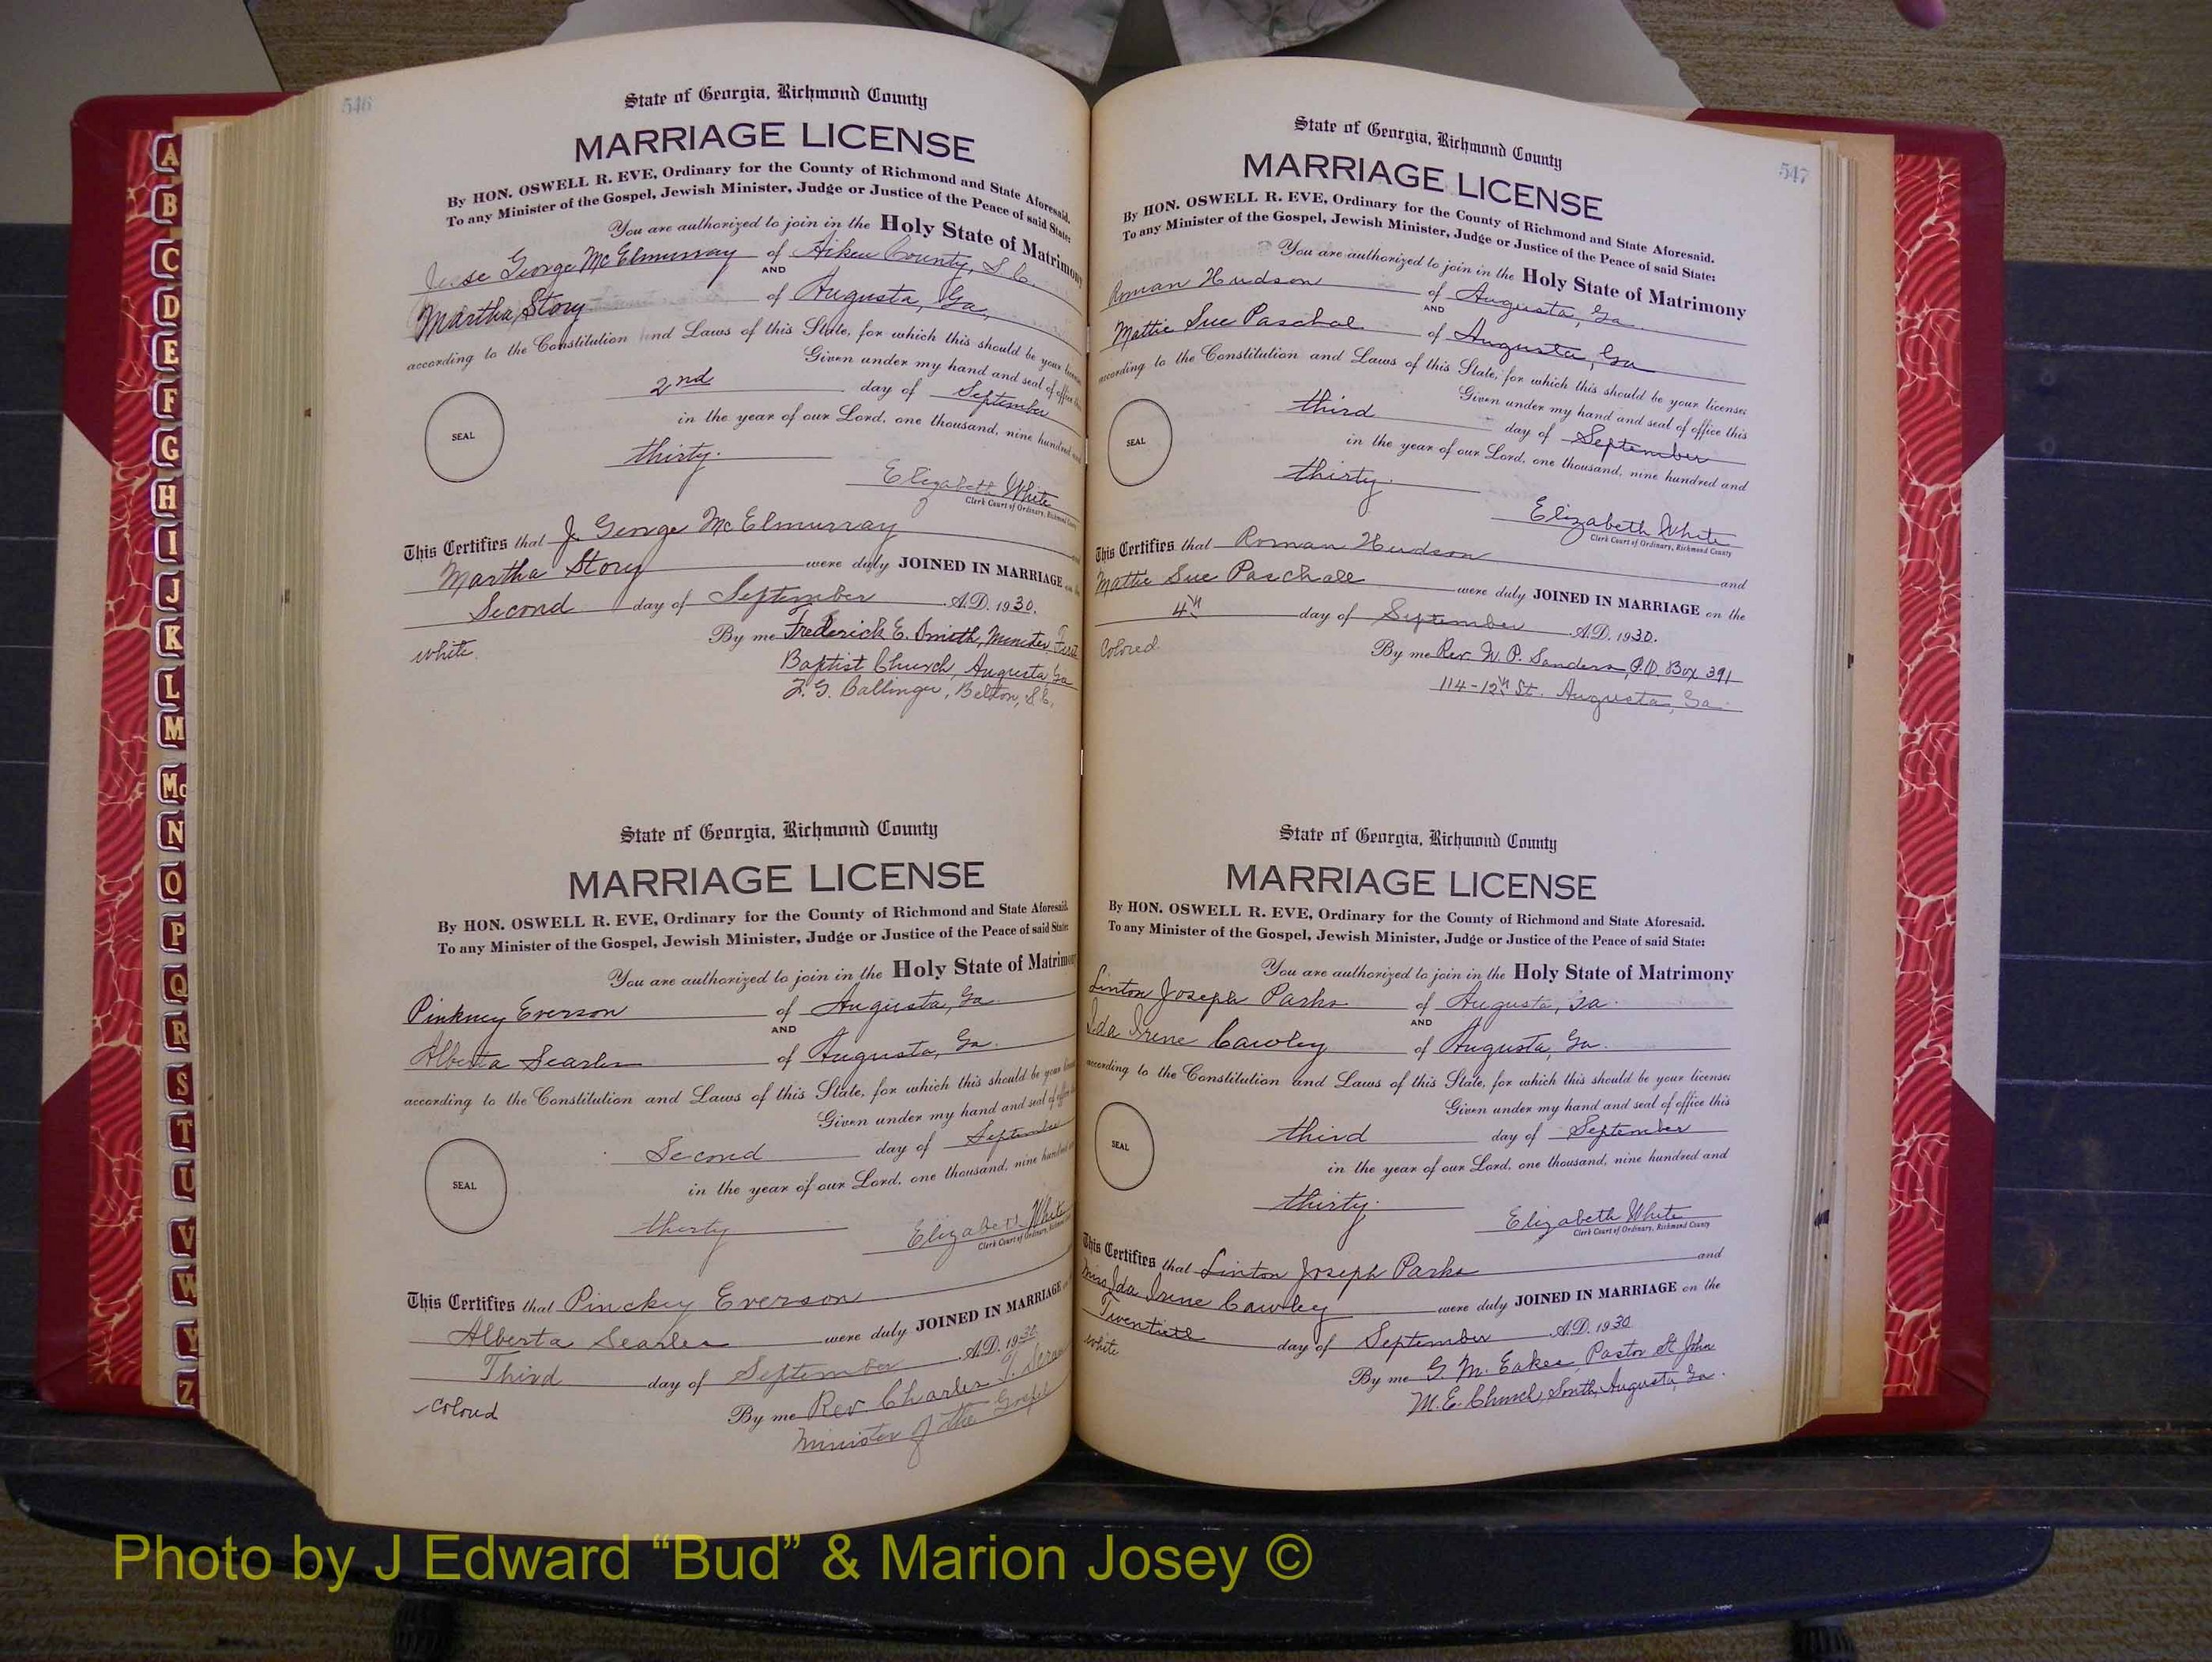 546
State of Georgia, Richmond County
MARRIAGE LICENSE
By HON. OSWELL R. EVE, Ordinary for the County of Richmond and State Aforesaid.
To any Minister of the Gospel, Jewish Minister, Judge or Justice of the Peace of said State:
You are authorized to join in the Holy State of Matrimony
Jesse George McElmurray of Aiken County, S.C.
AND
Martha Story of Augusta, Ga,
according to the Constitution and Laws of this State, for which this should be your license
Given under my hand and seal of office this
2nd day of September
SEAL
in the year of our Lord, one thousand, nine hundred and
thirty.
Elizabeth White
Clerk Court of Ordinary, Richmond County
This Certifies that J. George McElmurray and
Martha Story were duly JOINED IN MARRIAGE on the
Second day of September A.D. 1930.
white
By me Frederick E. Smith, Minister First
Baptist Church, Augusta, Ga
J. G. Ballinger, Belton, S.C.
State of Georgia, Richmond County
MARRIAGE LICENSE
By HON. OSWELL R. EVE, Ordinary for the County of Richmond and State Aforesaid.
To any Minister of the Gospel, Jewish Minister, Judge or Justice of the Peace of said State:
You are authorized to join in the Holy State of Matrimony
Pinkney Everson of Augusta, Ga.
AND
Alberta Searles of Augusta, Ga.
according to the Constitution and Laws of this State, for which this should be your license
Given under my hand and seal of office
Second day of September
SEAL
in the year of our Lord, one thousand, nine hundred and
thirty
Elizabeth White
Clerk Court of Ordinary, Richmond
This Certifies that Pinckey Everson
Alberta Searles were duly JOINED IN MARRIAGE
Third day of September A.D. 1930
Colored
By me Rev Charles T.
Minister of the Gospel
547
State of Georgia, Richmond County
MARRIAGE LICENSE
By HON. OSWELL R. EVE, Ordinary for the County of Richmond and State Aforesaid.
To any Minister of the Gospel, Jewish Minister, Judge or Justice of the Peace of said State:
You are authorized to join in the Holy State of Matrimony
Roman Hudson of Augusta, Ga.
AND
Mattie Sue Paschal of Augusta, Ga
according to the Constitution and Laws of this State, for which this should be your license:
Given under my hand and seal of office this
third day of September
SEAL
in the year of our Lord, one thousand, nine hundred and
thirty.
Elizabeth White
Clerk Court of Ordinary, Richmond County
This Certifies that Roman Hudson
Mattie Sue Paschall and
were duly JOINED IN MARRIAGE on the
4th day of September A.D. 1930.
Colored
By me Rev. W. P. Sanders, P.O. Box 391
114-12th St. Augusta, Ga.
State of Georgia, Richmond County
MARRIAGE LICENSE
By HON. OSWELL R. EVE, Ordinary for the County of Richmond and State Aforesaid.
To any Minister of the Gospel, Jewish Minister, Judge or Justice of the Peace of said State:
You are authorized to join in the Holy State of Matrimony
Linton Joseph Parks of Augusta, Ga.
AND
Ida Irene Cawley of Augusta, Ga.
according to the Constitution and Laws of this State, for which this should be your license:
Given under my hand and seal of office this
third day of September
SEAL
in the year of our Lord, one thousand, nine hundred and
thirty.
Elizabeth White
Clerk Court of Ordinary, Richmond County
This Certifies that Linton Joseph Parks and
Miss Ida Irene Cawley were duly JOINED IN MARRIAGE on the
Twentieth day of September A.D. 1930
white
By me G. M. Eakes, Pastor St John
M.E. Church, South, Augusta, Ga.
A
B
C
D
E
F
G
H
I
J
K
L
M
Mc
N
O
P
Q
R
S
T
U
V
W
Y
Z
Photo by J Edward “Bud” & Marion Josey ©